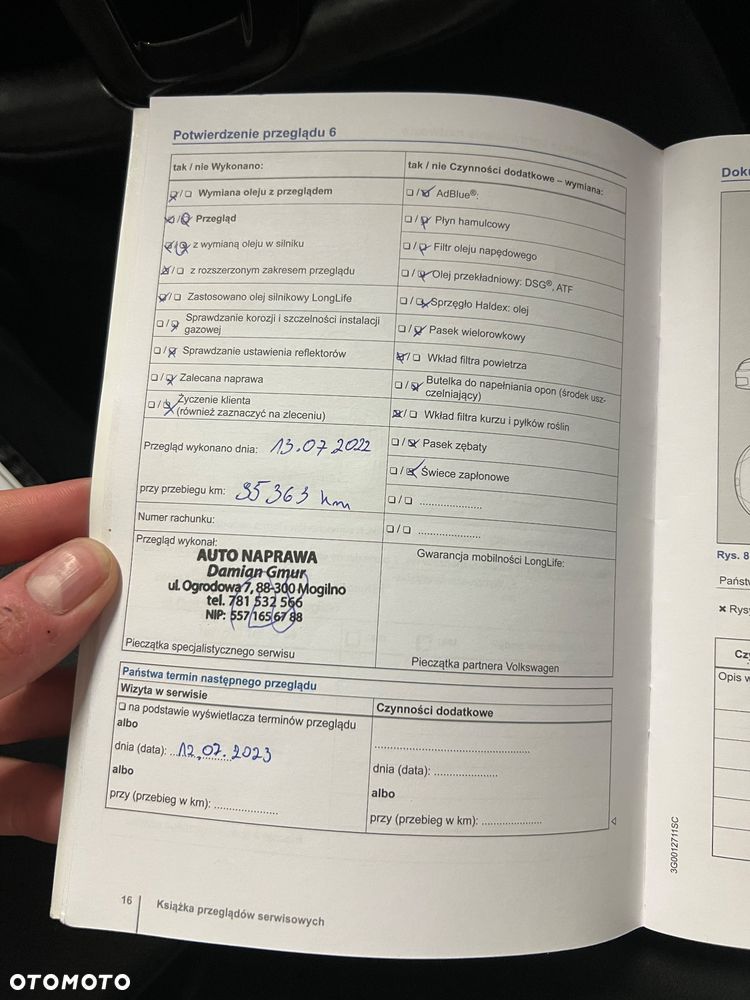 Potwierdzenie przeglądu 6
tak / nie Wykonano:
☒/☐ Wymiana oleju z przeglądem
Przegląd
z wymianą oleju w silniku
☒/☐ z rozszerzonym zakresem przeglądu
☒/☐ Zastosowano olej silnikowy LongLife
☐/☒ Sprawdzanie korozji i szczelności instalacji
gazowej
☐/☒ Sprawdzanie ustawienia reflektorów
☐/☒ Zalecana naprawa
☐/☒ Życzenie klienta
(również zaznaczyć na zleceniu)
Przegląd wykonano dnia: 13.07.2022
przy przebiegu km: 95363 km
Numer rachunku:
Przegląd wykonał:
AUTO NAPRAWA
Damian Gmur
ul. Ogrodowa 7, 88-300 Mogilno
tel. 781 532 566
NIP: 557 165 67 88
Pieczątka specjalistycznego serwisu
tak / nie Czynności dodatkowe – wymiana:
☐/☒ AdBlue®:
☐/☒ Płyn hamulcowy
☐/☒ Filtr oleju napędowego
☐/☒ Olej przekładniowy: DSG®, ATF
☐/☒ Sprzęgło Haldex: olej
☐/☒ Pasek wielorowkowy
☒/☐ Wkład filtra powietrza
☐/☒ Butelka do napełniania opon (środek usz-
czelniający)
☒/☐ Wkład filtra kurzu i pyłków roślin
☐/☒ Pasek zębaty
☐/☒ Świece zapłonowe
☐/☐ ......................
☐/☐ ......................
Gwarancja mobilności LongLife:
Pieczątka partnera Volkswagen
Państwa termin następnego przeglądu
Wizyta w serwisie
☐ na podstawie wyświetlacza terminów przeglądu
albo
dnia (data): 12.07.2023
albo
przy (przebieg w km): ......................
Czynności dodatkowe
......................
dnia (data): ......................
albo
przy (przebieg w km): ......................
16 Książka przeglądów serwisowych
3G0012711SC
Rys. 8
OTOMOTO